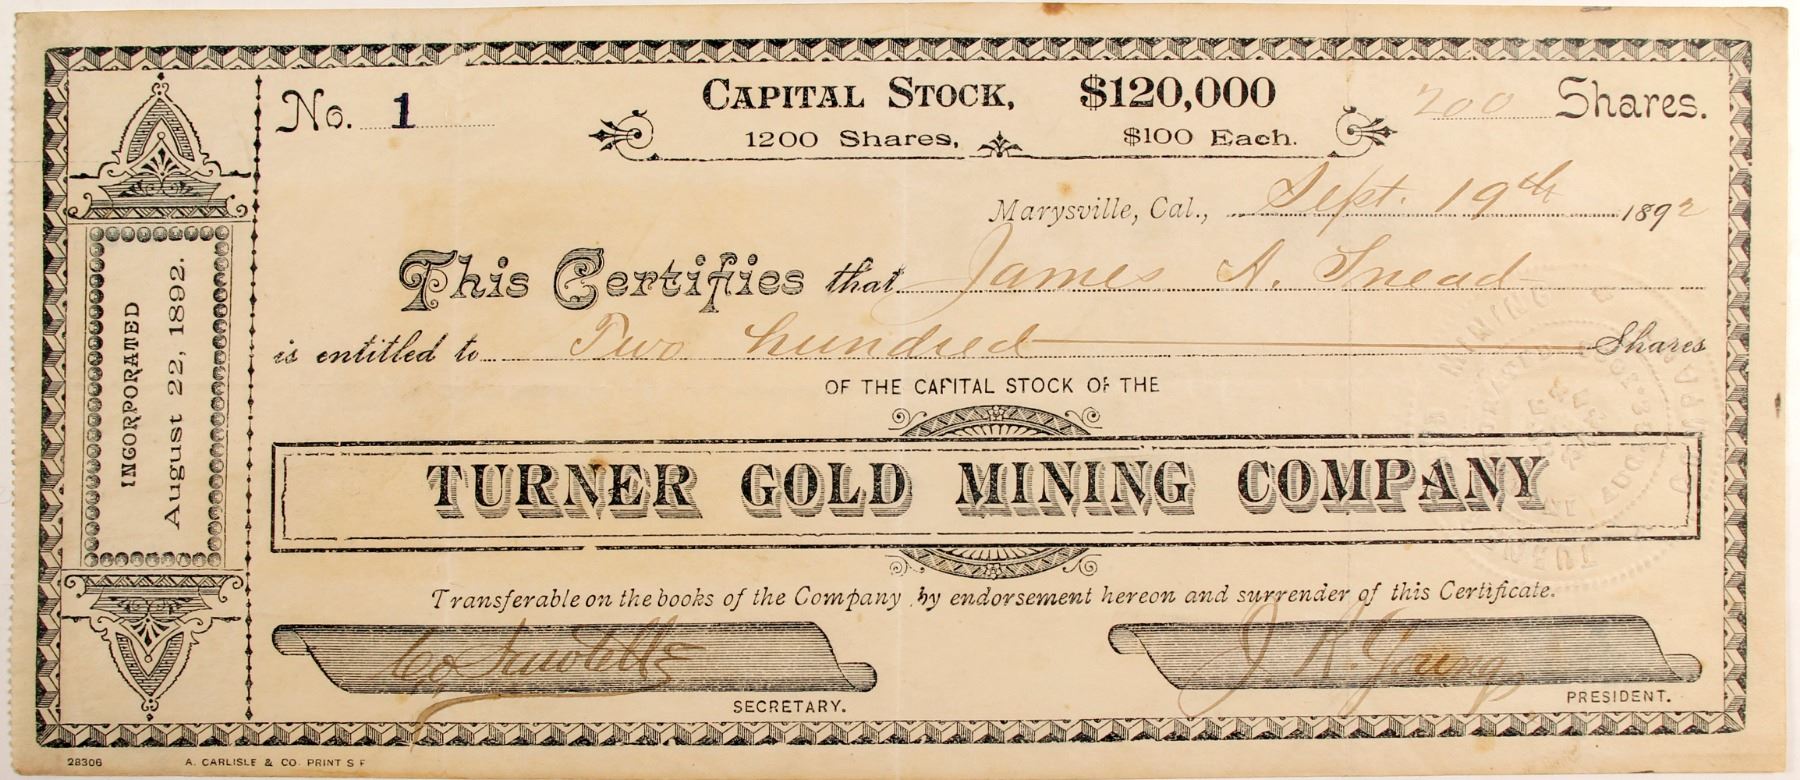 No. 1
CAPITAL STOCK, $120,000
1200 Shares, $100 Each.
200 Shares.
Marysville, Cal., Sept. 19th 1892
This Certifies that James A. Snead
is entitled to Two hundred Shares
OF THE CAPITAL STOCK OF THE
TURNER GOLD MINING COMPANY
Transferable on the books of the Company by endorsement hereon and surrender of this Certificate.
SECRETARY.
J. R. Young
PRESIDENT.
INCORPORATED
August 22, 1892.
28306
A. CARLISLE & CO. PRINT S F